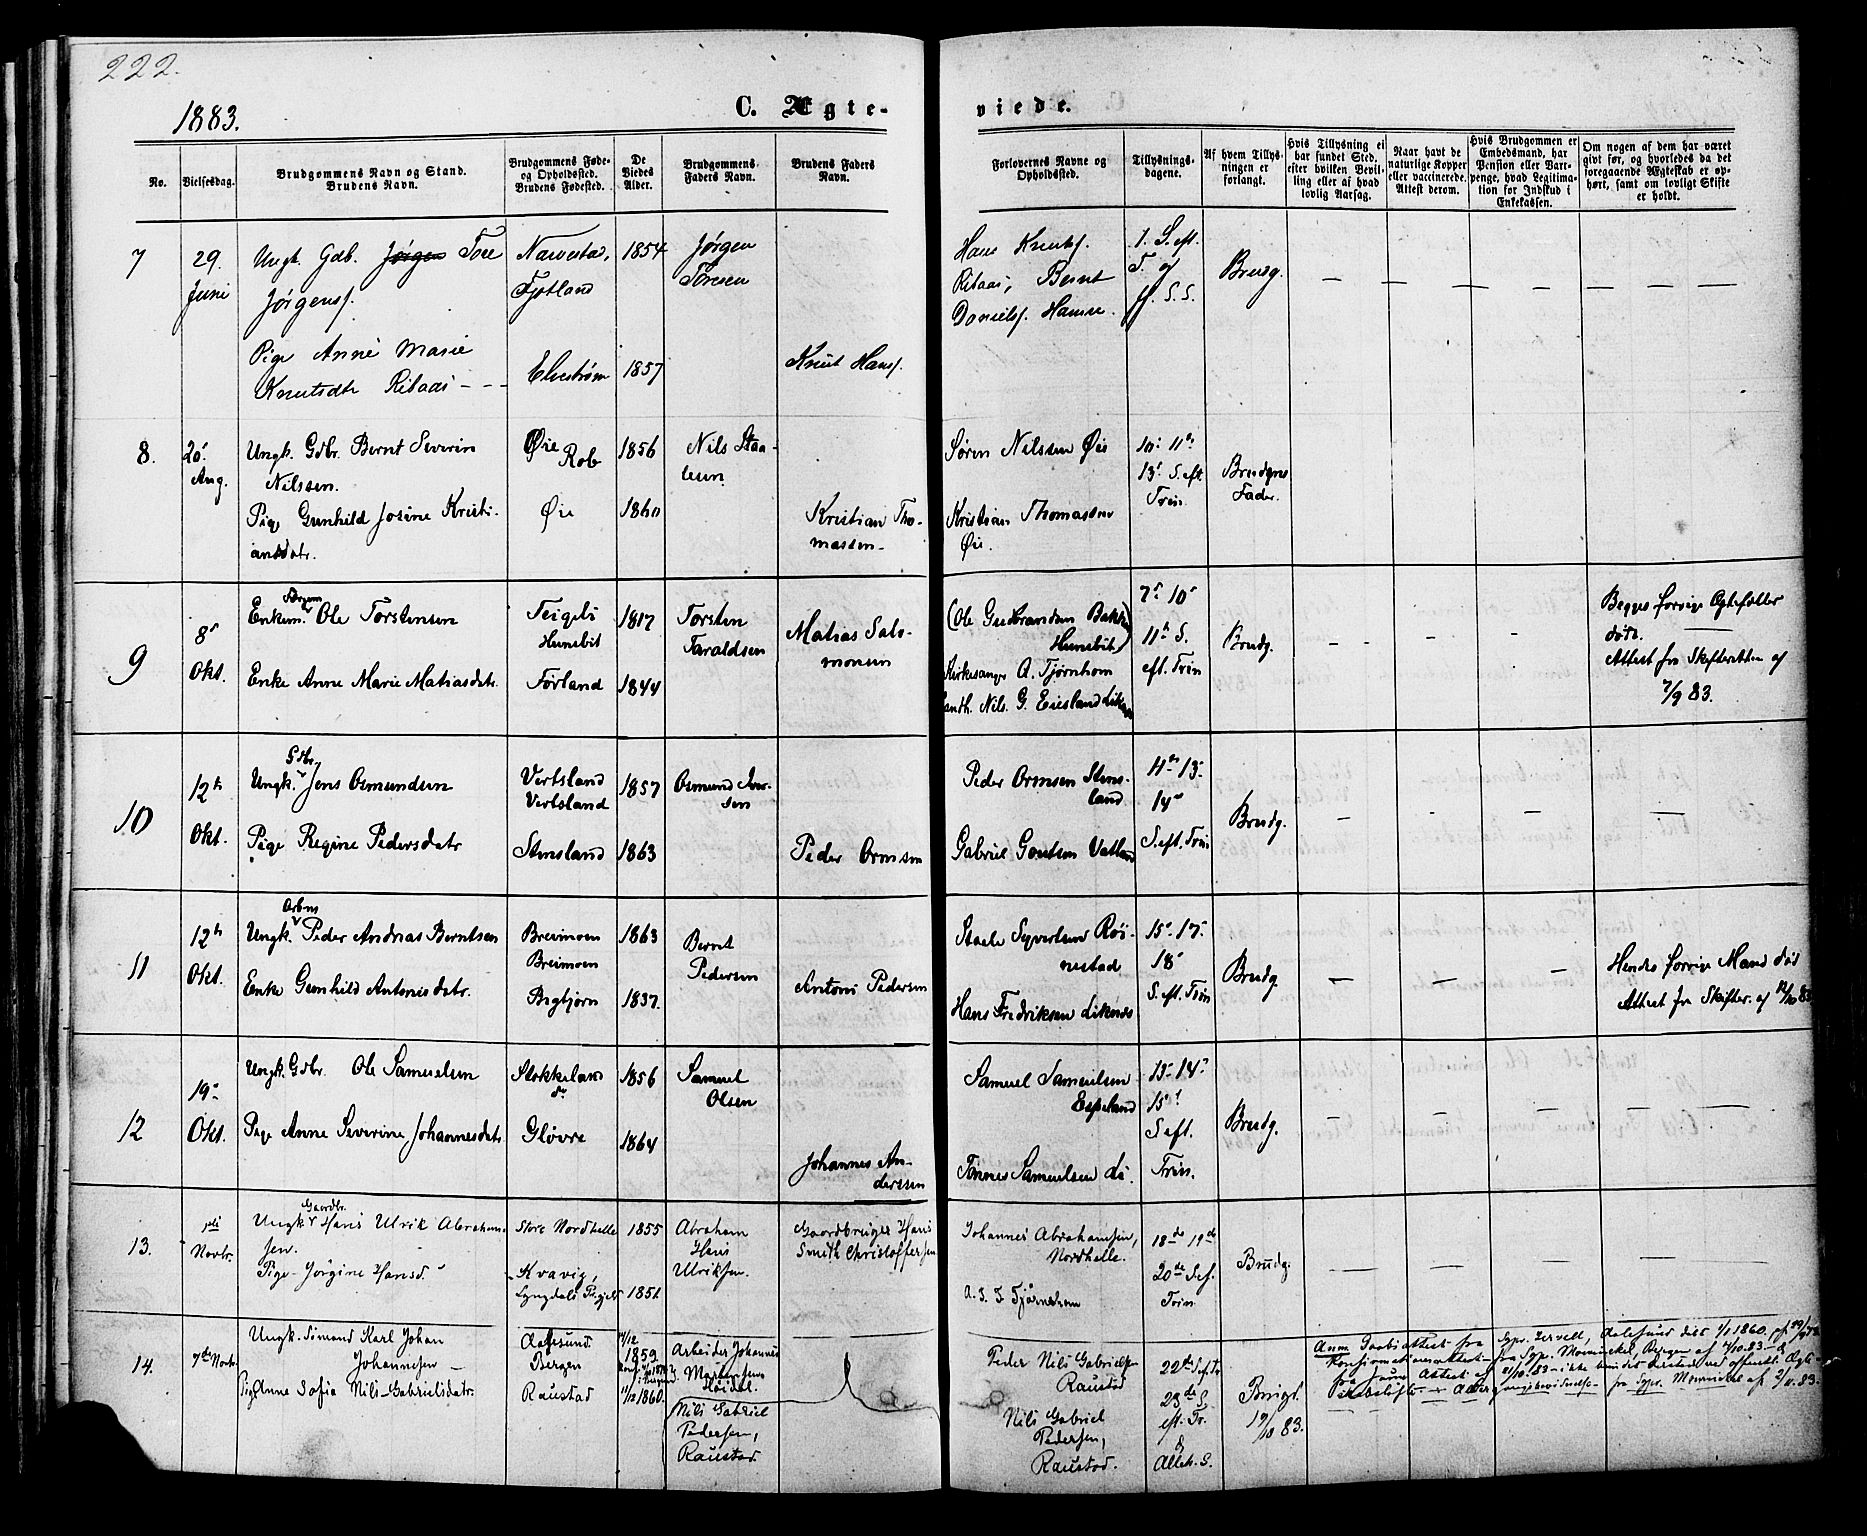 222.
1883.
C. Ægte-
viede.
No.
Vielsesdag.
Brudgommens Navn og Stand.
Brudens Navn.
Brudgommens Føde-
og Opholdssted.
Brudens Fødested.
De
Viedes
Alder.
Brudgommens
Faders Navn.
Brudens Faders
Navn.
Forlovernes Navne og
Opholdssted.
Tillysnings-
dagene.
Af hvem Tillys-
ningen er
forlangt.
Hvis Tillysning ei
har fundet Sted,
efter hvilken Bevil-
ling eller af hvad
lovlig Aarsag.
Naar havt de
naturlige Kopper
eller vaccinerede.
Attest derom.
Hvis Brudgommen er
Embedsmand, har
Pension eller Vart-
penge, hvad Legitima-
tion for Indskud i
Enkekassen.
Om nogen af dem har været
gift før, og hvorledes da det
foregaaende Ægteskab er op-
hørt, samt om lovligt Skifte
er holdt.
7
29.
Juni
Ungk. Gdb. Jørgen Tore
Jørgens.
Pige Anne Marie
Knutsdtr Risaas - - -
Fjotland
Elvestrøm
1854
1857
Jørgen
Toresen
Knut Hans.
Hans Knuts.
Risaas, Bernt
Daniels. Hamre.
1. S. eft.
T. og
ff. S. S.
Brudg.
8.
20.
Aug.
Ungk. Gdbr. Bernt Severin
Nilssen.
Pige Gunhild Josine Kristi-
ansdatr.
Øie
Rob
Øie
1856
1860
Nils Staa-
lesen
Kristian Tho-
massen
Søren Nilssen Øie
Kristian Thomassen
Øie.
10. 11te
13. S. eft.
Trin.
Brudgms
Fader.
9
8
Okt.
Enkem. Ole Torstensen
Enke Anne Marie Matiasdatr.
Teigeli
Hunsbit
Førland
1817
1844
Torsten
Taraldsen
Matias Salo-
monsen
(Ole Gudbrandsen Bakke
Hunsbit)
Kirkesanger A. Tjørnhom
Landh. Nils G. Eiesland Liknes
7. 10
11te S.
eft. Trin
Brudg.
Begges forrige Egtefæller
døde.
Attest fra Skifteretten af
7/9 83.
10
12te
Okt.
Gdbr.
Ungk. Jens Osmundsen
Pige Regine Pedersdatr
Vertsland
Vertsland
Stensland
1857
1863
Osmund Iver-
sen
Peder Ormsen
Peder Ormsen Stens-
land
Gabriel Goutsen Vatland
11te 13.
14de
S. eft. Trin
Brudg.
11
12te
Okt.
Arbm
Ungk. Peder Andreas Berntsen
Enke Gunhild Antonisdatr.
Breimoen
Breimoen
Bigtjørn
1863
1837.
Bernt
Pedersen
Antoni Pedersen
Staale Syvertsen Røi-
nestad
Hans Fredriksen Liknes
15. 17.
18
S. eft. Trin
Brudg.
Hendes forrige Mand død
Attest fra Skifter. af 12/10 83
12
19.
Okt.
Ungk. Gdbr. Ole Samuelsen
Pige Anne Severine Johannesdatr.
Stokkeland
do
Gløvre
1856
1864
Samuel
Olsen
Johannes An-
derssen
Samuel Samuelsen
Espeland
Tønnes Samuelsen do.
13. 14.
15.
S eft.
Trin.
Brudg.
13.
1ste
Novbr.
Gaardbr.
Ungk. Hans Ulrik Abraham-
sen.
Pige Jørgine Hansd.
Store Nordhelle
Kvavig,
Lyngdals Prgjeld
1855
1851
Abraham
Hans
Ulriksen.
Gaardbruger Hans
Smith Christoffersen
Johannes Abrahamsen,
Nordhelle.
A. S. T Tjørnehom
18de 19de
20de S ef.
Trin.
Brudg.
14.
7de Novbr.
Ungk. Simond Karl Johan
Johannesen
Pige Anne Sofia Nils-Gabrielsdatr.
Aalesund.
Bergen
Raustad
1859
11/12 1860.
Arbeider Johannes
Nils Gabriel
Pedersen,
Raustad.
Peder Nils Gabrielsen
Raustad
Nils Gabriel
Pedersen,
Raustad.
22de S ef Tr
23de S.
eft. Tr.
&
Alleh. S.
Brudgt.
19/10 83.
Anm Daabsattest fra